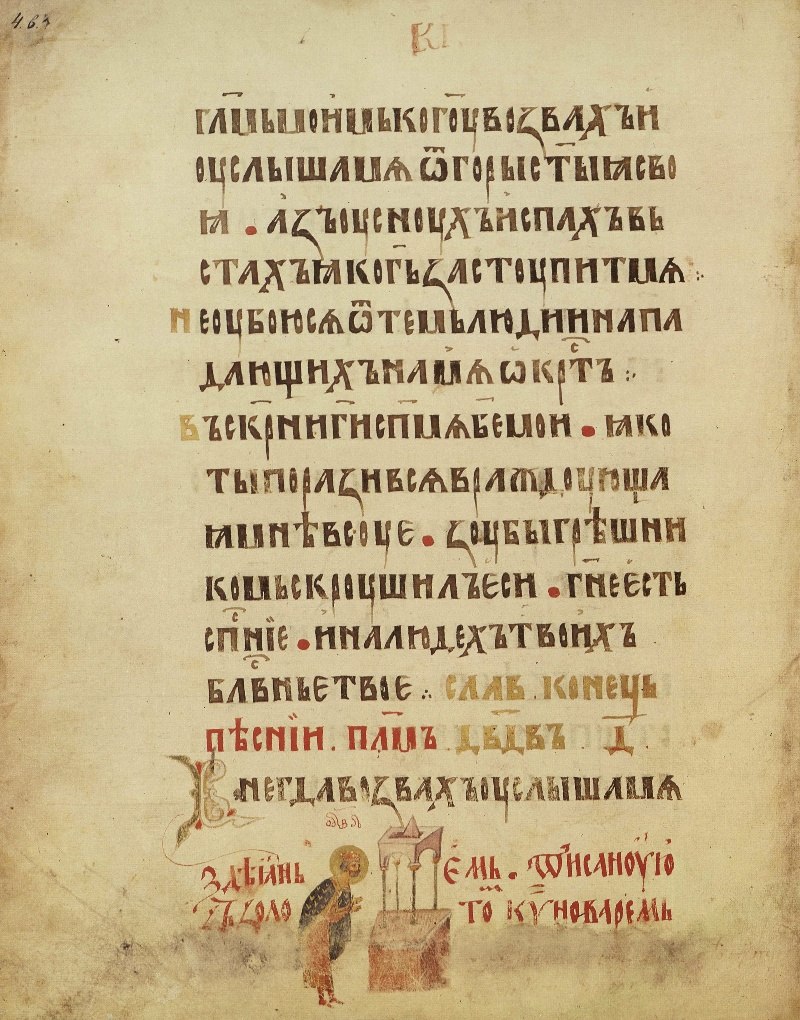 4.6.3
К
гл҃мьмоимькогс҃увъзвахъи
оуслышамѧ ѿгорыст҃ыꙗсво
ꙗ . азъоусноухъиспахъвъ
стахъꙗкогь҃застоупитмѧ
неоубоюсѧ ѿтемьлюдиинапа
дающихънамѧ ѡкрⷭ҇тъ
въскр҃нигиспⷭ҇мѧбе҃мои . ꙗко
тыпоразивсѧвраждоующа
ꙗмнѣвсоуе . зоубыгрѣшни
комьскроушилъеси . гн҃еесть
спⷭ҇ніе . иналюдехътвоихъ
блⷭ҇вньетвое слав конець
пѣсніи . пл҃мъ дв҃двъ д҃
внегдавозвахъоуслышамѧ
дв҃д
здѣіань емь . ѿписаноуїю
золо то куноваремь